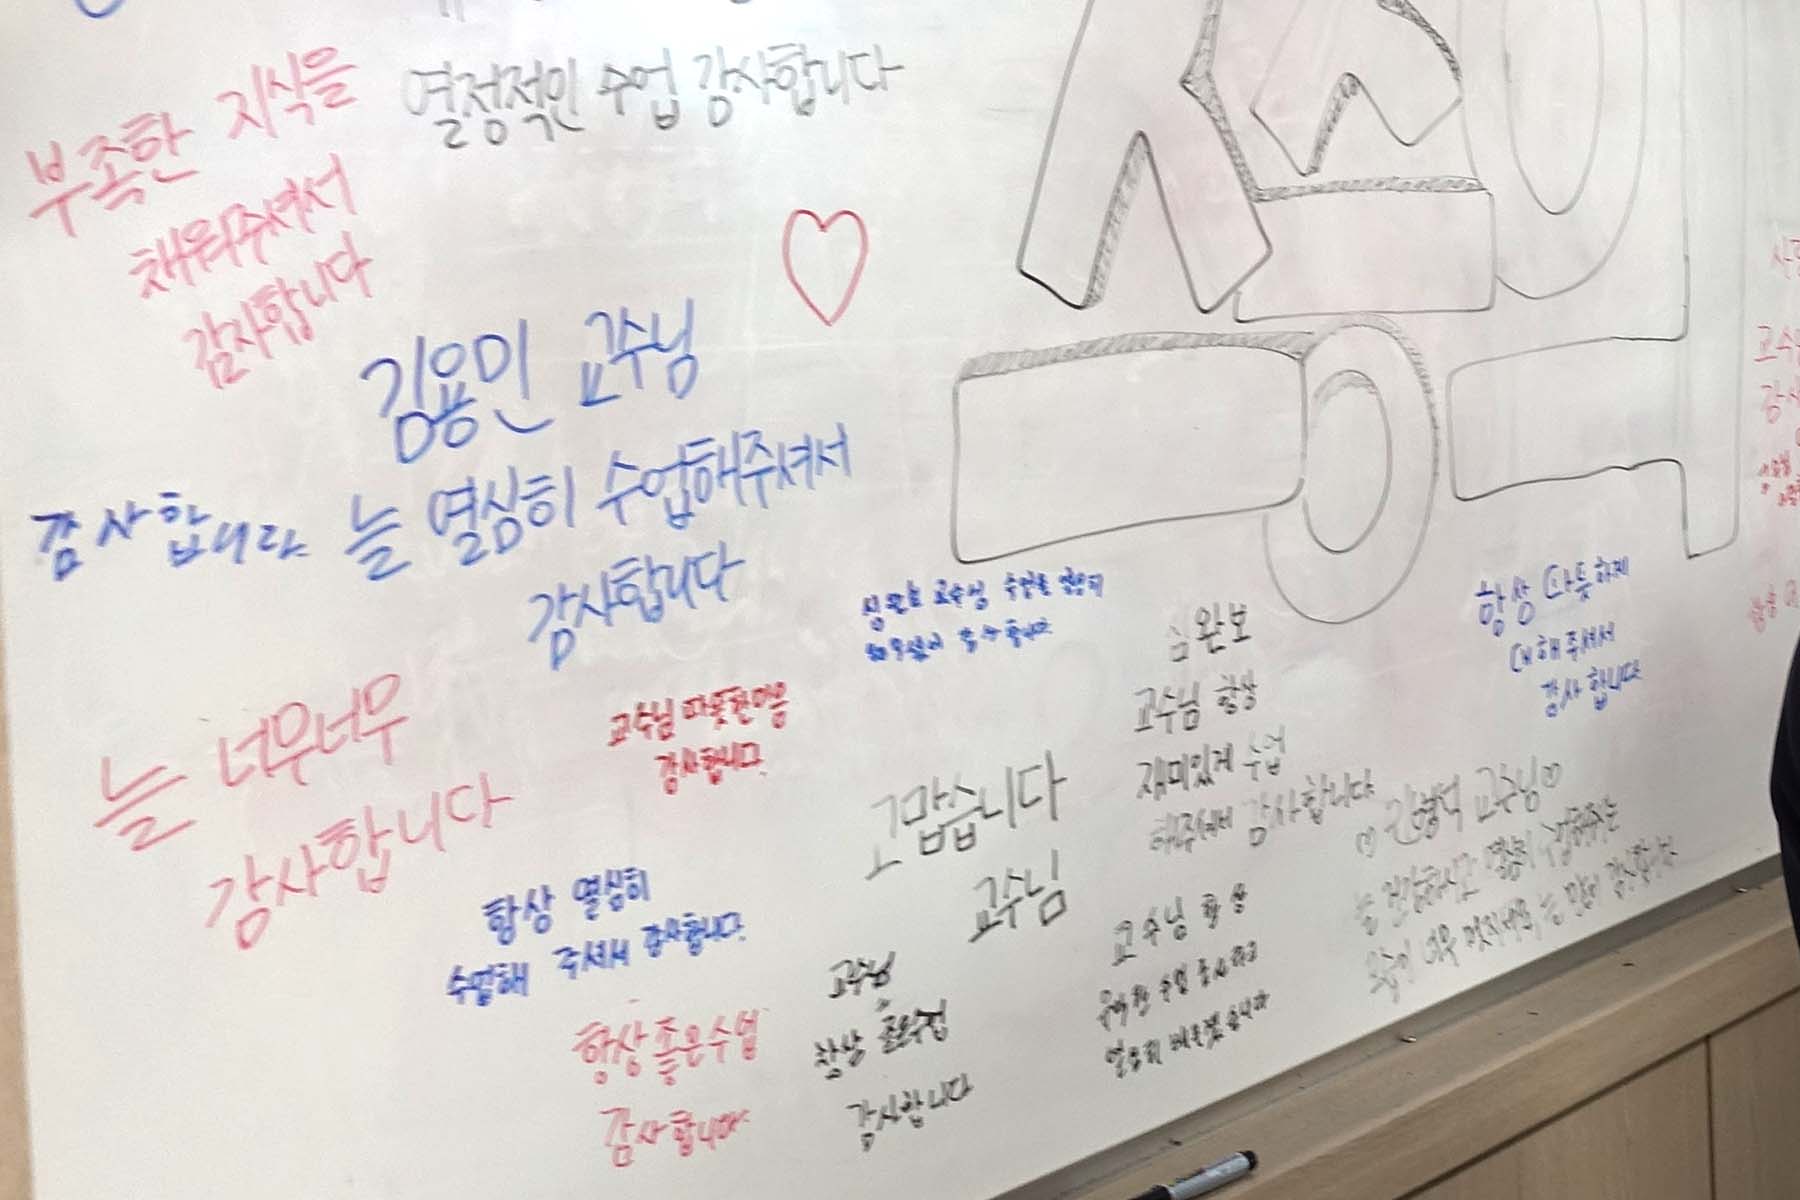 부족한 지식을
채워주셔서
감사합니다
열정적인 수업 감사합니다
김용민 교수님
늘 열심히 수업해주셔서
감사합니다
감사합니다
늘 너무너무
감사합니다
교수님 따뜻한마음
감사합니다.
교수님 수업을 열심히
감사합니다.
심완보
교수님 항상
재미있게 수업
해주셔서 감사합니다
항상 따듯하게
대해주셔서
감사합니다
고맙습니다
교수님
항상 열심히
수업해 주셔서 감사합니다.
항상 좋은수업
감사합니다
교수님
항상 좋은수업
감사합니다
교수님 항상
수업
교수님♡
늘 건강하시고 열심히 수업해주시는
감사합니다